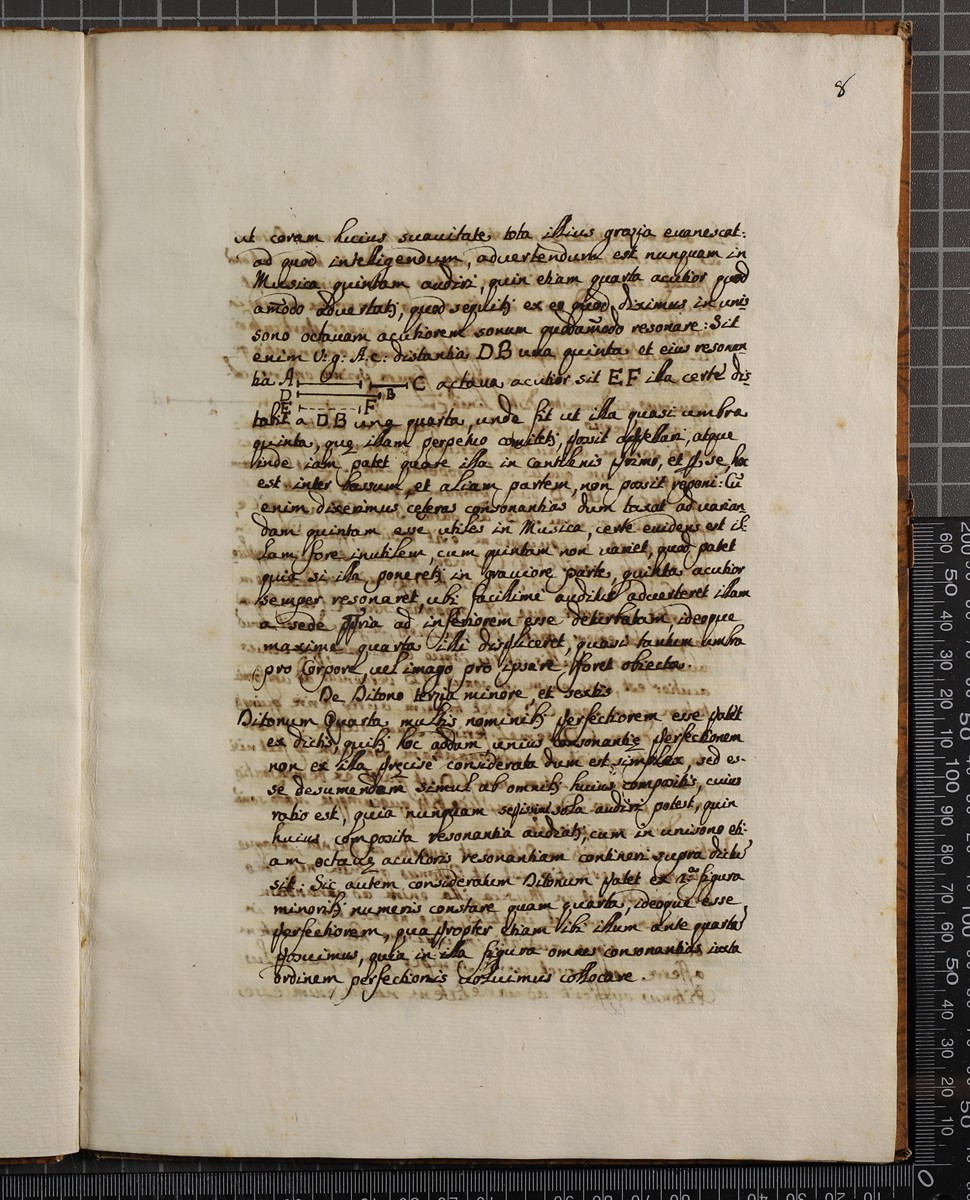 8
ut coram huius suauitate tota illius grazia euanescat:
ad quod intelligendum, aduertendum est nunquam in
Musica quintam audiri, quin etiam quarta acutior quod
am̄odo aduertatʒ, quod sequitʒ ex eo quod diximus in uni-
sono octauam acutiorem sonum quodam̄odo resonare: Sit
enim V: g: A: c: distantia DB una quinta et eius resonan
tia A C octaua acutior sit E F illa certè dis-
D B
E F
tabit a DB una quarta, unde fit ut illa quasi umbra
quintę, quę illam perpetuo comitetʒ, possit appellari, atque
inde iam patet quare illa in cantilenis primò, et p se, hoc
est inter bassum, et aliam partem, non possit reponi: Cū
enim dixerimus ceteras consonantias dum taxat ad varian
dam quintam esse utiles in Musica, certè euidens est il
lam fore inutilem, cum quintam non variet, quod patet
quia si illa poneretʒ in grauiore parte, quinta acutior
semper resonaret, ubi facillimè auditus aduerteret illam
a sede ppria ad inferiorem esse deturbatam ideoque
maximè quarta illi displiceret, quasi tantum umbra
pro Corpore, uel imago pro ipsa re foret obiecta.
De Ditono terzia minore, et sextis
Ditonum Quarta multis nominibʒ perfectiorem esse patet
ex dictis, quibʒ hoc addam, unius consonantię perfectionem
non ex illa pręcisè considerata dum est simplex, sed es-
se desumendam simul ab omnibʒ huius compositis, cuius
ratio est, quia nunquam sola audiri potest, quin
huius composita resonantia audiatʒ, cum in unisono eti-
am octauę acutioris resonantiam contineri supra dictū
sit: Sic autem consideratum Ditonum patet ex 2.ª figura
minoribʒ numeris constare quam quarta, ideoque esse
perfectiorem, qua propter etiam ibi illum ante quartā
posuimus, quia in illa figura omnes consonantias iuxta
ordinem perfectionis uoluimus collocare.